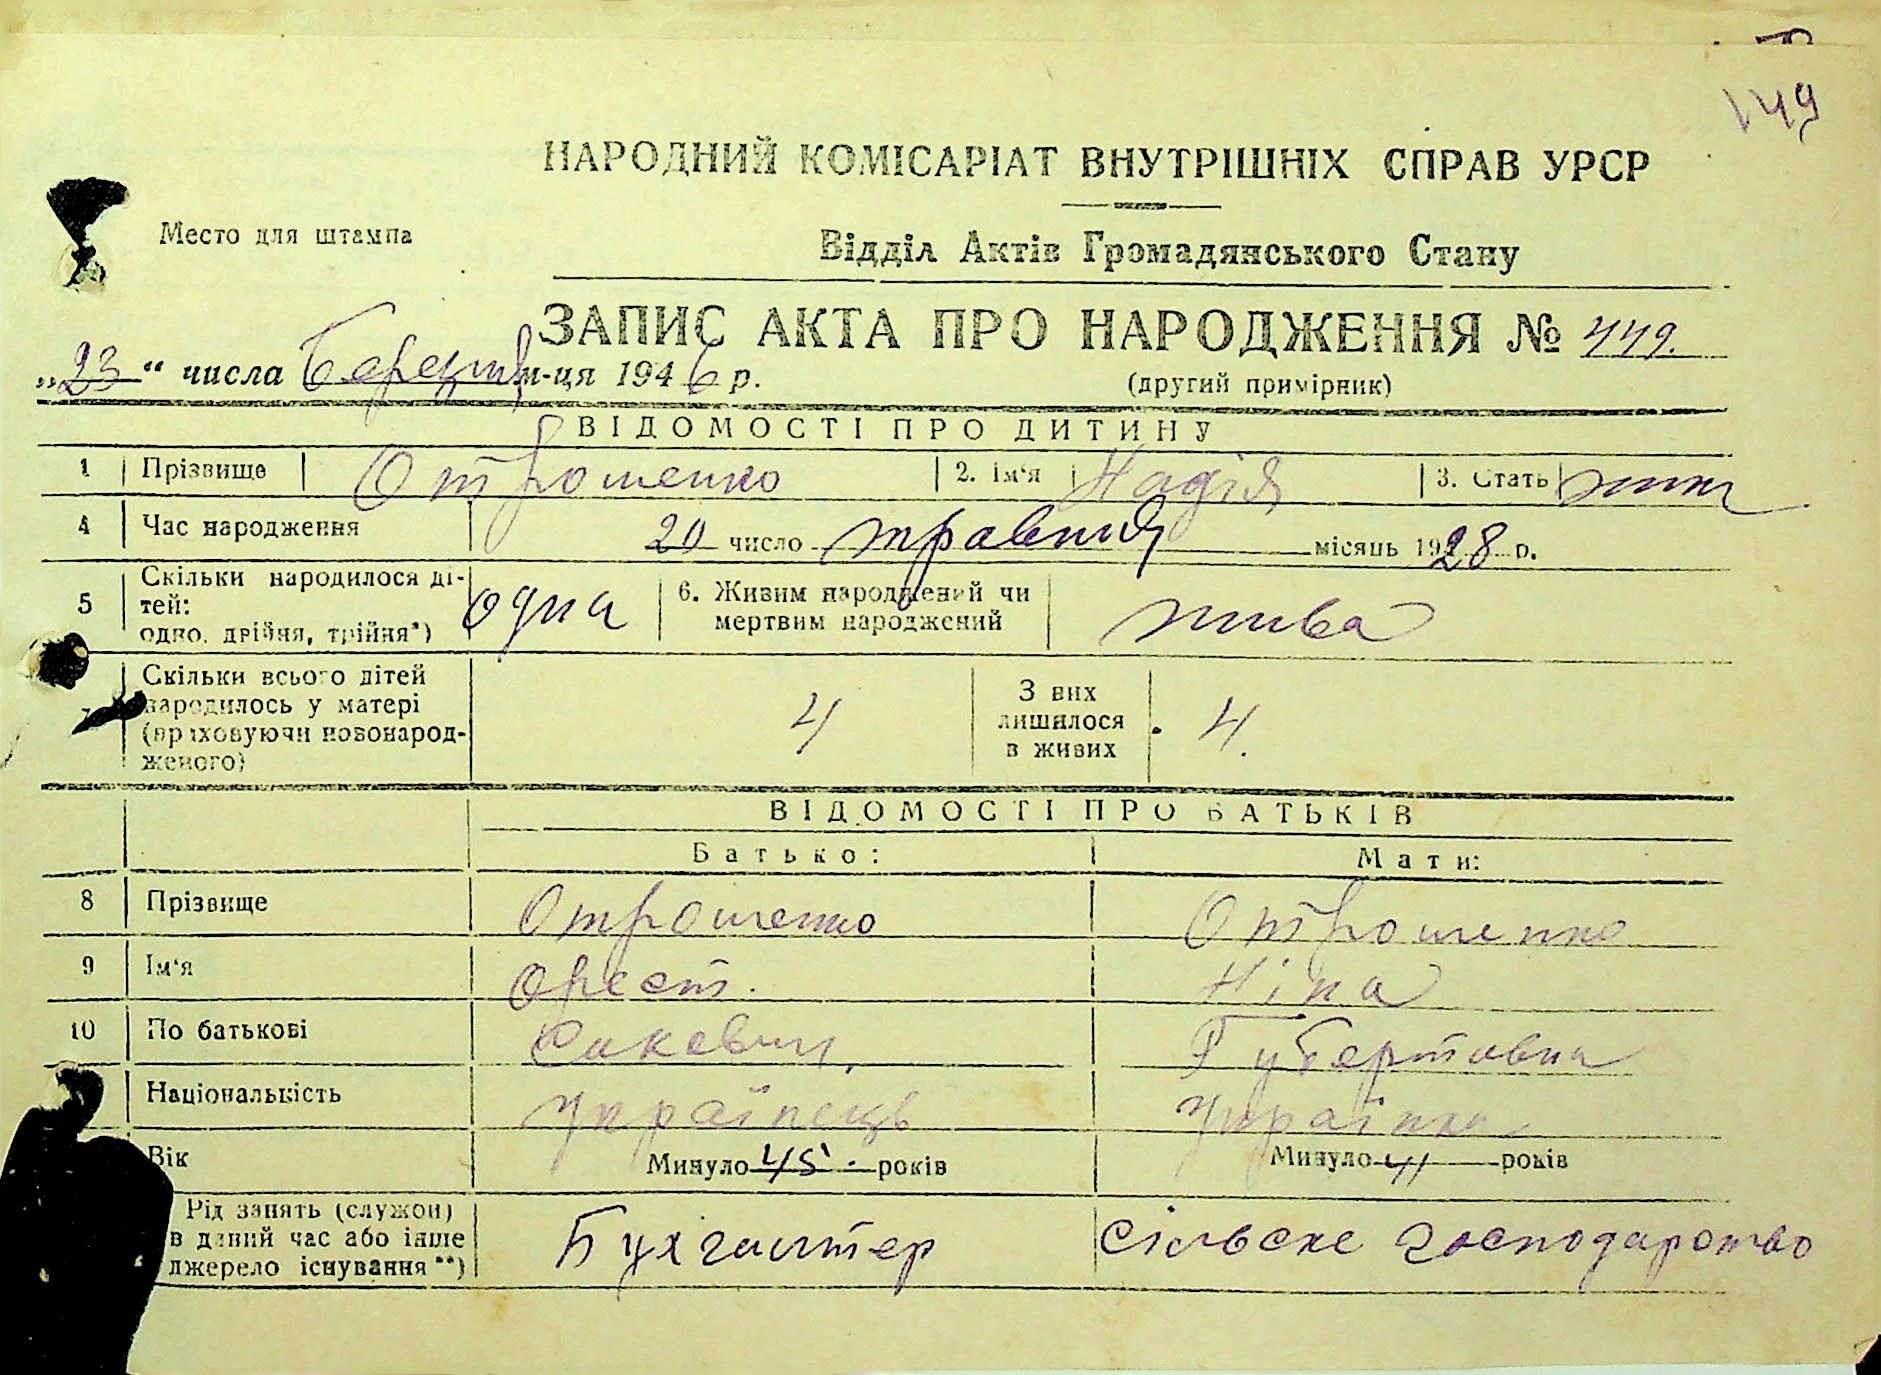 149
НАРОДНИЙ КОМІСАРІАТ ВНУТРІШНІХ СПРАВ УРСР
Место для штампа
Відділ Актів Громадянського Стану
ЗАПИС АКТА ПРО НАРОДЖЕННЯ № 449.
„23“ числа Березня м-ця 1946 р.
(другий примірник)
ВІДОМОСТІ ПРО ДИТИНУ
1 Прізвище Отрошенко 2. Ім‘я Надія 3. Стать жін
4 Час народження 20 число травня місяць 1928 р.
5 Скільки народилося ді-
тей:
одно, двійня, трійня*) одна 6. Живим народжений чи
мертвим народжений жива
7 Скільки всього дітей
народилось у матері
(враховуючи новонарод-
женого) 4 З них
лишилося
в живих 4.
ВІДОМОСТІ ПРО БАТЬКІВ
Батько: Мати:
8 Прізвище Отрошенко Отрошенко
9 Ім‘я Орест. Ніна
10 По батькові Губертовна
Національність Українець Українка
Вік Минуло 45 років Минуло 41 років
Рід занять (служби)
в даний час або інше
джерело існування**) Бухгалтер Сільське господарство